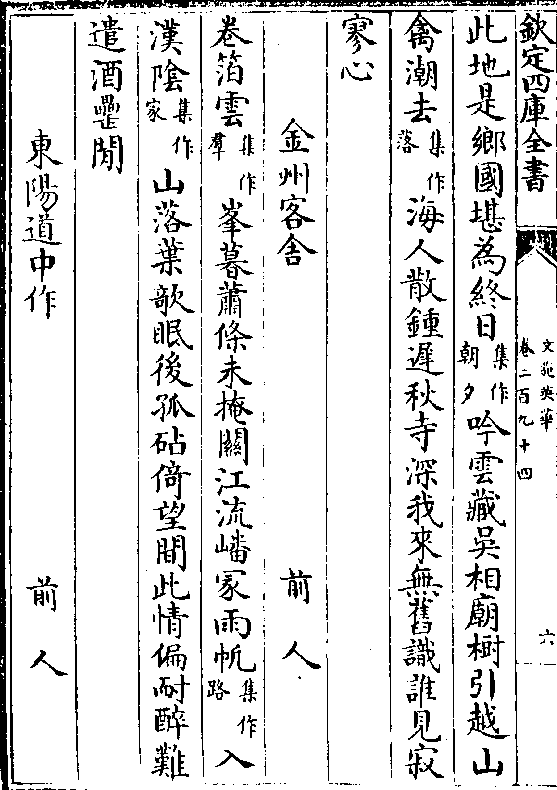 欽定四庫全書
文苑英華
卷二百九十四
六
此地是鄉國堪為終日集作朝夕吟雲藏吳相廟樹引越山
禽潮去集作落海人散鍾遲秋寺深我來無舊識誰見寂
寥心
金州客舍 前人
卷箔雲集作羣峯暮蕭條未掩關江流嶓冢雨帆集作路入
漢陰集作家山落葉欹眠後孤砧倚望間此情偏耐醉難
遣酒罍閒
東陽道中作 前人